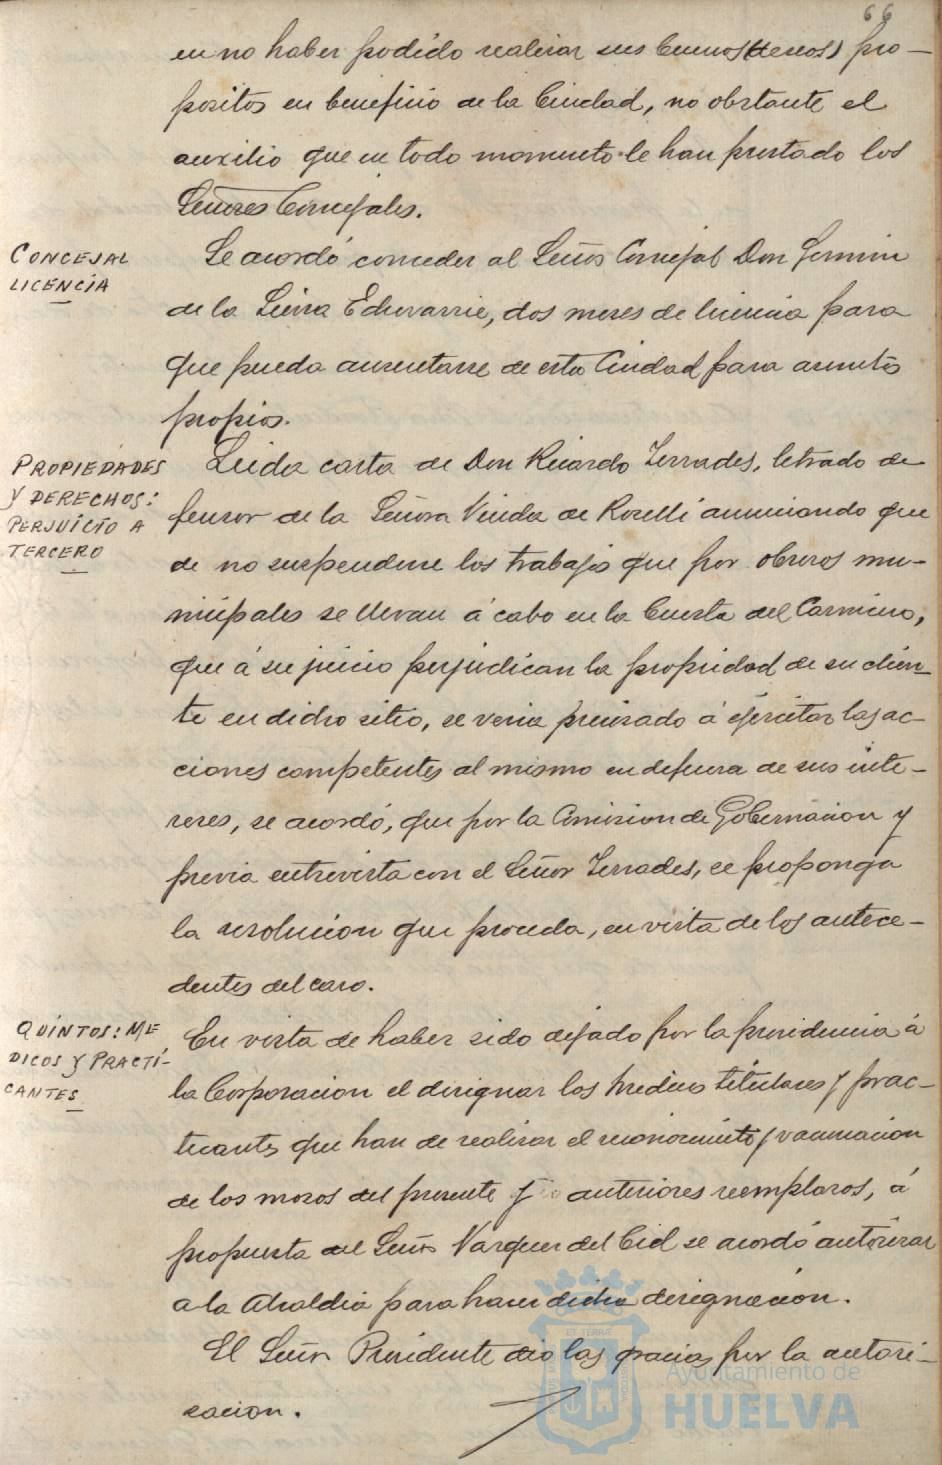 66
en no haber podido realizar sus buenos (deseos) pro-
pósitos en beneficio de la Ciudad, no obstante el
auxilio que en todo momento le han prestado los
Señores Concejales.
CONCEJAL
LICENCIA
Se acordó conceder al Señor Concejal Don Fermin
de la Sierra Echevarrie, dos meses de licencia para
que pueda ausentarse de esta Ciudad para asuntos
propios.
PROPIEDADES
Y DERECHOS:
PERJUICIO A
TERCERO
Leida carta de Don Ricardo Terrades, letrado de
fensor de la Señora Viuda de Roselli anunciando que
de no suspenderse los trabajos que por obreros mu-
nicipales se llevan á cabo en la Cuesta del Carnicero,
que á su juicio perjudican la propiedad de su clien-
te en dicho sitio, se veria precisado á ejercitar las ac-
ciones competentes al mismo en defensa de sus inte-
reses, se acordó, que por la Comision de Gobernacion y
previa entrevista con el Señor Terrades, se proponga
la resolucion que proceda, en vista de los antece-
dentes del caso.
QUINTOS: ME
DICOS Y PRACTI-
CANTES
En vista de haber sido dejado por la presidencia á
la Corporacion el designar los medicos titulares y prac-
ticantes que han de realizar el reconocimiento y vacunacion
de los mozos del presente y anteriores reemplazos, á
propuesta del Señor Vazquez del Cid se acordó autorizar
a la Alcaldia para hacer dicha designacion.
El Señor Presidente dio las gracias por la autori-
zacion.
Ayuntamiento de
HUELVA